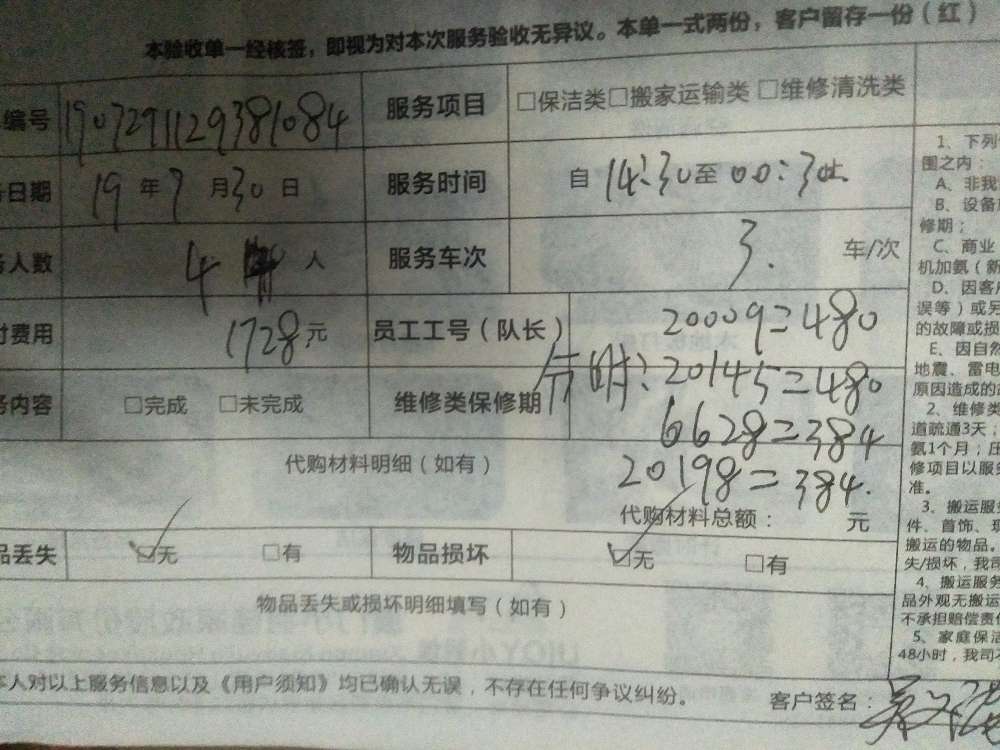 本验收单一经核签，即视为对本次服务验收无异议。本单一式两份，客户留存一份（红）
编号 1907291129381084 服务项目 □保洁类□搬家运输类 □维修清洗类
日期 19 年 7 月 30 日 服务时间 自 14:30 至 00:30止
人数 4 人 服务车次 3. 车/次
费用 1728 元 员工工号（队长） 20009=480
分明: 20145=480
内容 □完成 □未完成 维修类保修期
6628=384
代购材料明细（如有） 20198=384.
代购材料总额： 元
品丢失 ☑无 □有 物品损坏 ☑无 □有
物品丢失或损坏明细填写（如有）
本人对以上服务信息以及《用户须知》均已确认无误，不存在任何争议纠纷。 客户签名：
1、下列
围之内：
A、非我
B、设备
修期；
C、商业
机加氨（新
D、因客户
误等）或另
的故障或损
E、因自然
地震、雷电
原因造成的
2、维修类
道疏通3天；
氨1个月；压
修项目以服务
准。
3、搬运服务
件、首饰、
搬运的物品。
失/损坏，我司
4、搬运服务
品外观无搬运
不承担赔偿责任
5、家庭保洁
48小时，我司不